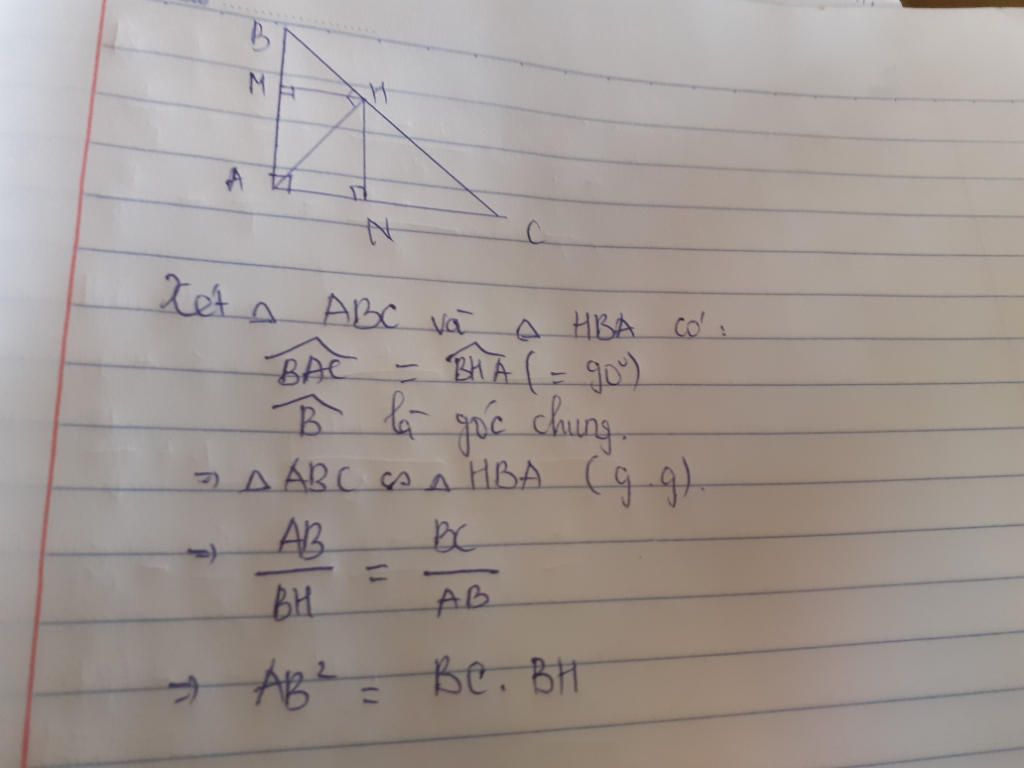 B
M H
A
N C
Xét △ ABC và △ HBA có:
$\widehat{BAC}$ = $\widehat{BHA}$ (= 90°)
$\widehat{B}$ là góc chung.
⇒ △ ABC ∽ △ HBA (g.g).
⇒ $\frac{AB}{BH} = \frac{BC}{AB}$
⇒ AB² = BC . BH